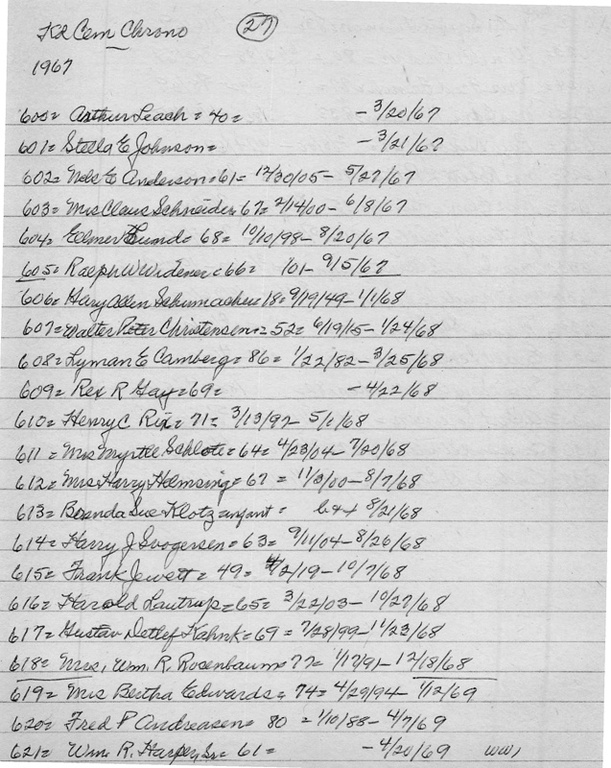 Kd Cem Chrono (27)
1967
600= Arthur Leach = 40= - 3/20/67
601= Stella E Johnson= - 3/21/67
602= Nels E Anderson=61= 12/30/05- 5/27/67
603= Mrs Claus Schneider= 67= 2/14/00- 6/8/67
604= Elmer Lund= 68= 10/10/98- 8/20/67
605= Ralph W Widener=66= /01- 9/5/67
606= Hary Allen Schumacher 18= 9/19/49- 1/1/68
607= Walter Peter Christensen= 52= 6/19/15- 1/24/68
608= Lyman E Camberg= 86= 1/22/82- 3/25/68
609= Rex R Gay=69= - 4/22/68
610= Henry C Rix= 71= 3/13/97- 5/1/68
611= Mrs Myrtle Schlote= 64= 4/23/04- 7/20/68
612= Mrs Harry Helmsing= 67= 11/3/00- 8/7/68
613= Brenda Sue Klotz=infant= b&d 8/21/68
614= Harry J Svogersen= 63= 9/11/04- 8/26/68
615= Frank Jewett= 49= 2/19- 10/7/68
616= Harold Lautrup=65= 3/22/03- 10/27/68
617= Gustav Detlef Kahnk= 69= 7/28/99- 11/23/68
618= Mrs, Wm. R. Rosenbaum= 77= 1/17/91- 12/18/68
619= Mrs Bertha Edwards= 74= 4/29/94- 1/12/69
620= Fred P Andreasen= 80 = 1/10/88- 4/7/69
621= Wm. R. Harper, Sr= 61= - 4/20/69 WW1